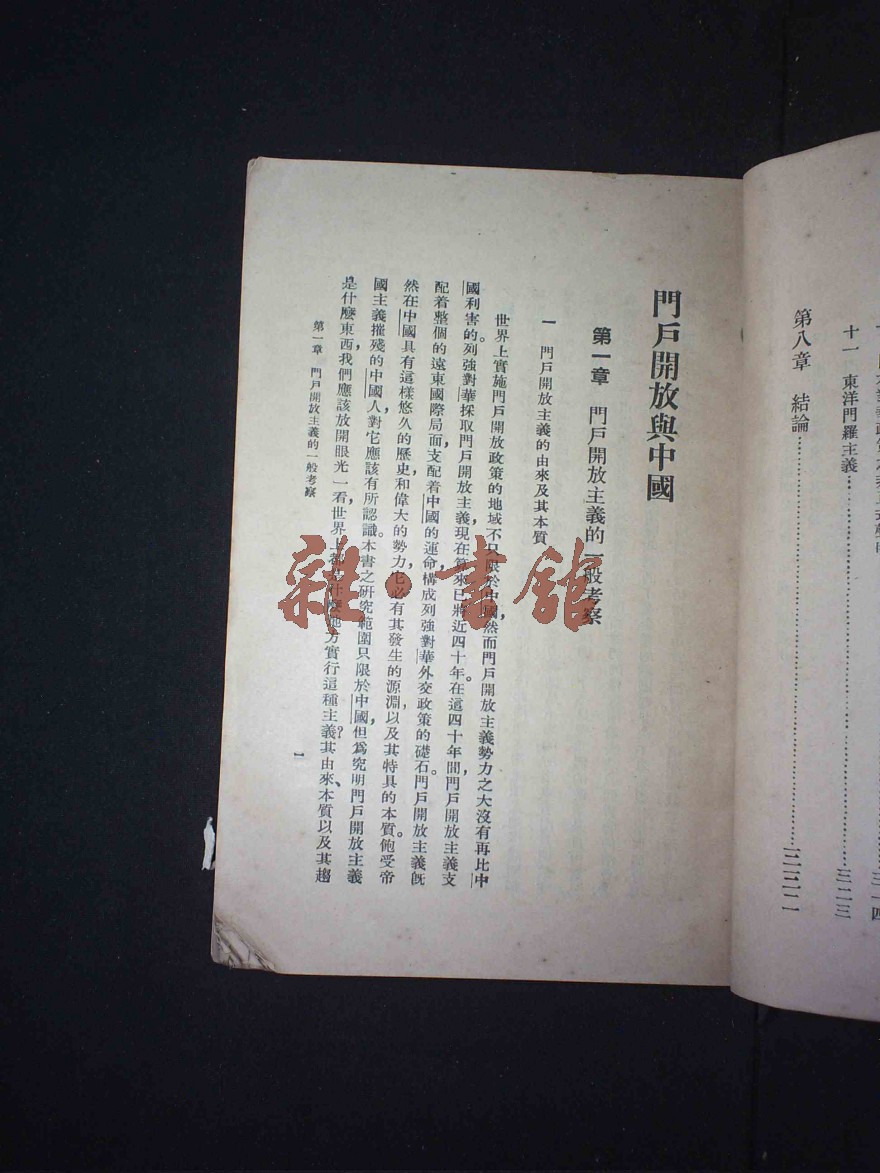 十一 東洋門羅主義……三二三
第八章 結論……三三二
門戶開放與中國
第一章 門戶開放主義的一般考察
一 門戶開放主義的由來及其本質
世界上實施門戶開放政策的地域不只限於中國，然而門戶開放主義勢力之大沒有再比中
國利害的。列強對華採取門戶開放主義，現在算來已將近四十年。在這四十年間門戶開放主義支
配着整個的遠東國際局面，支配着中國的運命，構成列強對華外交政策的礎石。門戶開放主義既
然在中國具有這樣悠久的歷史和偉大的勢力，它必有其發生的源淵，以及其特具的本質。飽受帝
國主義摧殘的中國人，對它應該有所認識。本書之研究範圍只限於中國，但爲究明門戶開放主義
是什麼東西，我們應該放開眼光一看世界上都在什麼地方實行這種主義？其由來、本質以及其趨
第一章 門戶開放主義的一般考察
一
雜·書館